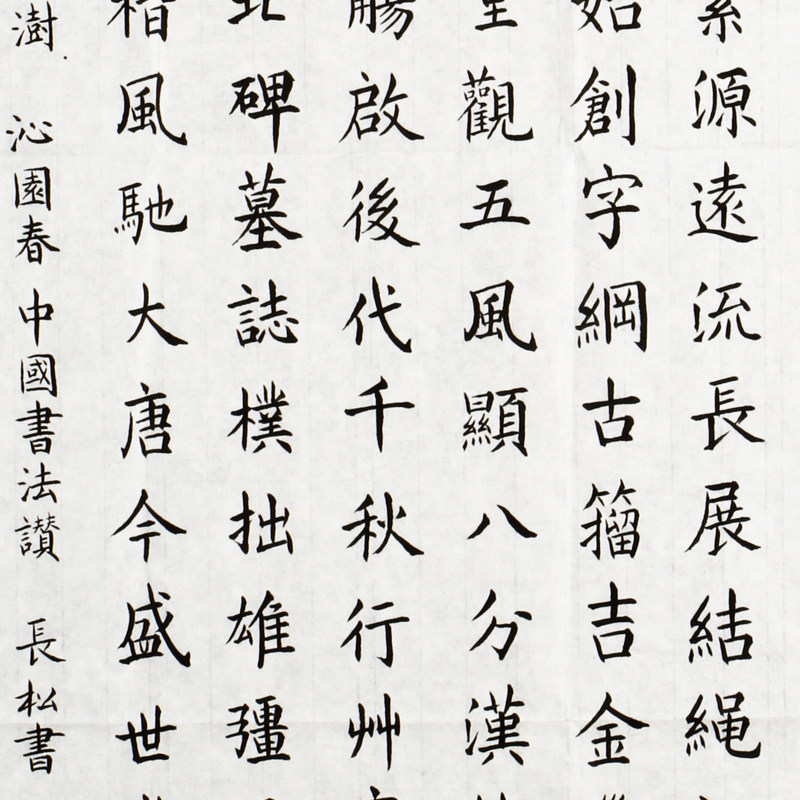 源遠流長展結繩
始創字綱古籀吉金
觀五風顯八分漢
觴啟後代千秋行艸
北碑墓誌樸拙雄彊
楷風馳大唐今盛世
澍 沁園春 中國書法讃 長松書